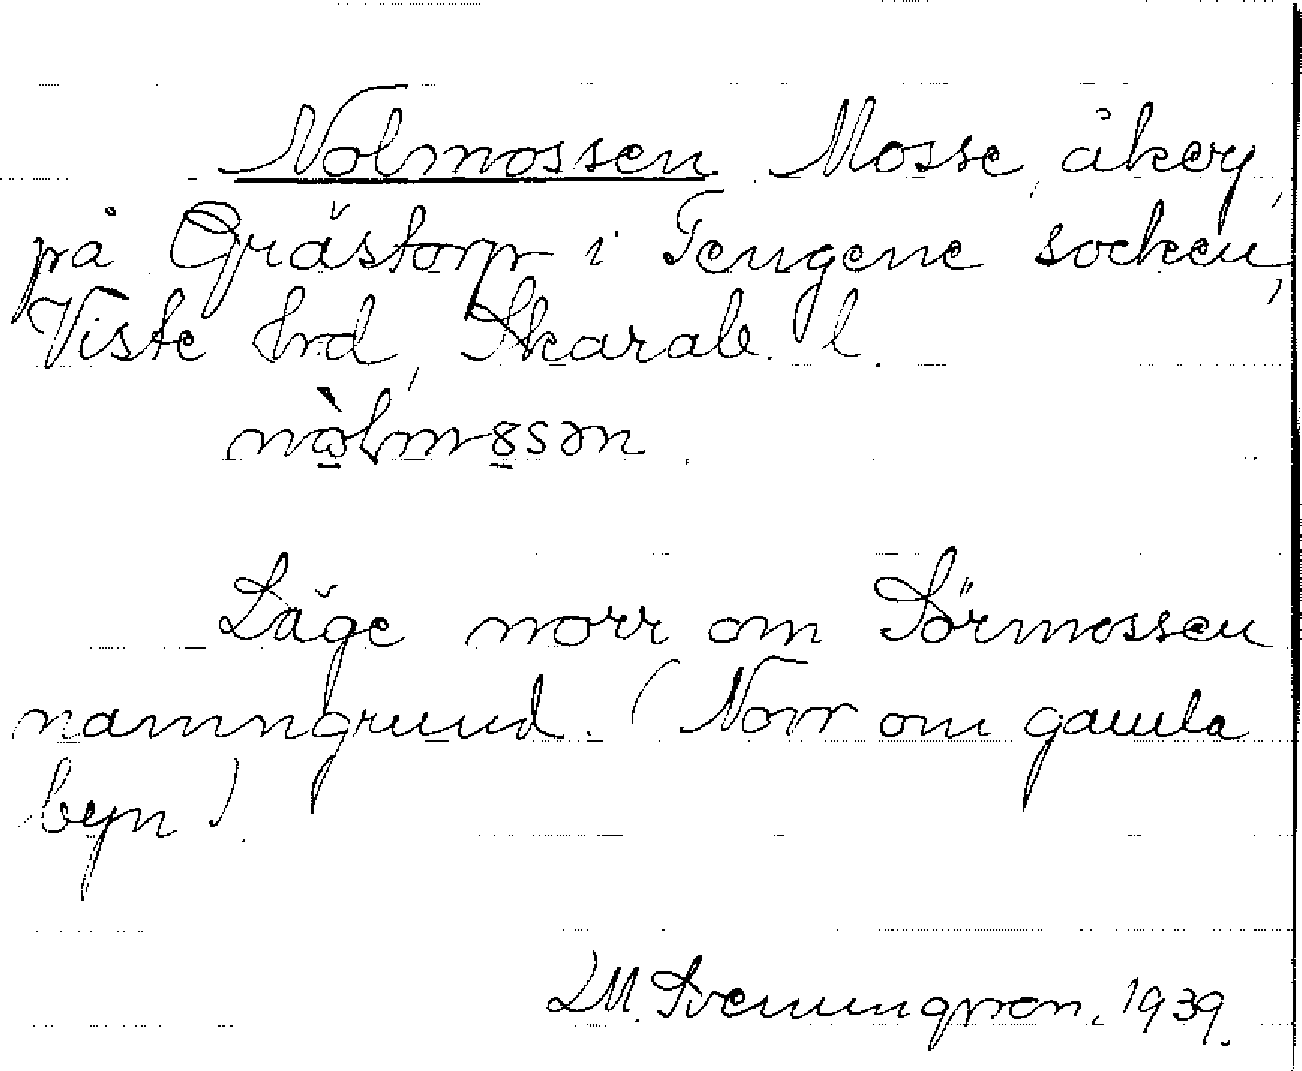 Nolmossen Mosse, åker,
på Grästorp i Tengene socken,
Viste hrd, Skarab. l.
nò̱lmo̱sən
Läge norr om Sörmossen
namngrund. (Norr om gamla
byn).
LM. Svenungsson. 1939.